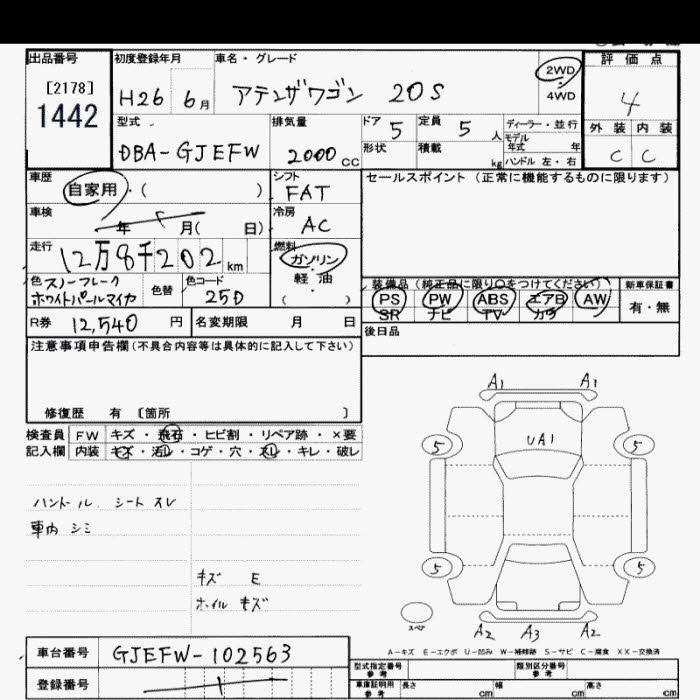 出品番号 初度登録年月 車名・グレード 評価点
[2178] H26 6月 アテンザワゴン 20S 2WD 4
1442 4WD
型式 排気量 ドア 定員 ディーラー・並行 外装 内装
DBA-GJEFW 2000cc 5 5人 モデル年式 年 C C
形状 積載 kg ハンドル 左・右
車歴 シフト セールスポイント(正常に機能するものに限ります)
自家用・( ) FAT
車検 年 月( 日) 冷房 AC
走行 12万8千202km 燃料 ガソリン・軽油
色 スノーフレークホワイトパールマイカ 色替 色コード 25D ( )
装備品(純正品に限り○をつけてください) 新車保証書
PS PW ABS エアB AW 有・無
SR ナビ TV カワ
R券 12,540円 名変期限 月 日 後日品
注意事項申告欄(不具合内容等は具体的に記入して下さい)
修復歴 有 〔箇所 〕
検査員 FW キズ・飛石・ヒビ割・リペア跡・×要
記入欄 内装 キズ・汚レ・コゲ・穴・スレ・キレ・破レ
A1 A1
UA1
5 5
ハンドル、シート スレ
車内 シミ
5 5
キズ E
ホイル キズ
スペア
A2 A3 A2
A-キズ E-エクボ U-凹み W-補修跡 S-サビ C-腐食 XX-交換済
車台番号 GJEFW-102563
型式指定番号 参考 類別区分番号 参考
登録番号
車庫証明用 参考 長さ cm 幅 cm 高さ cm